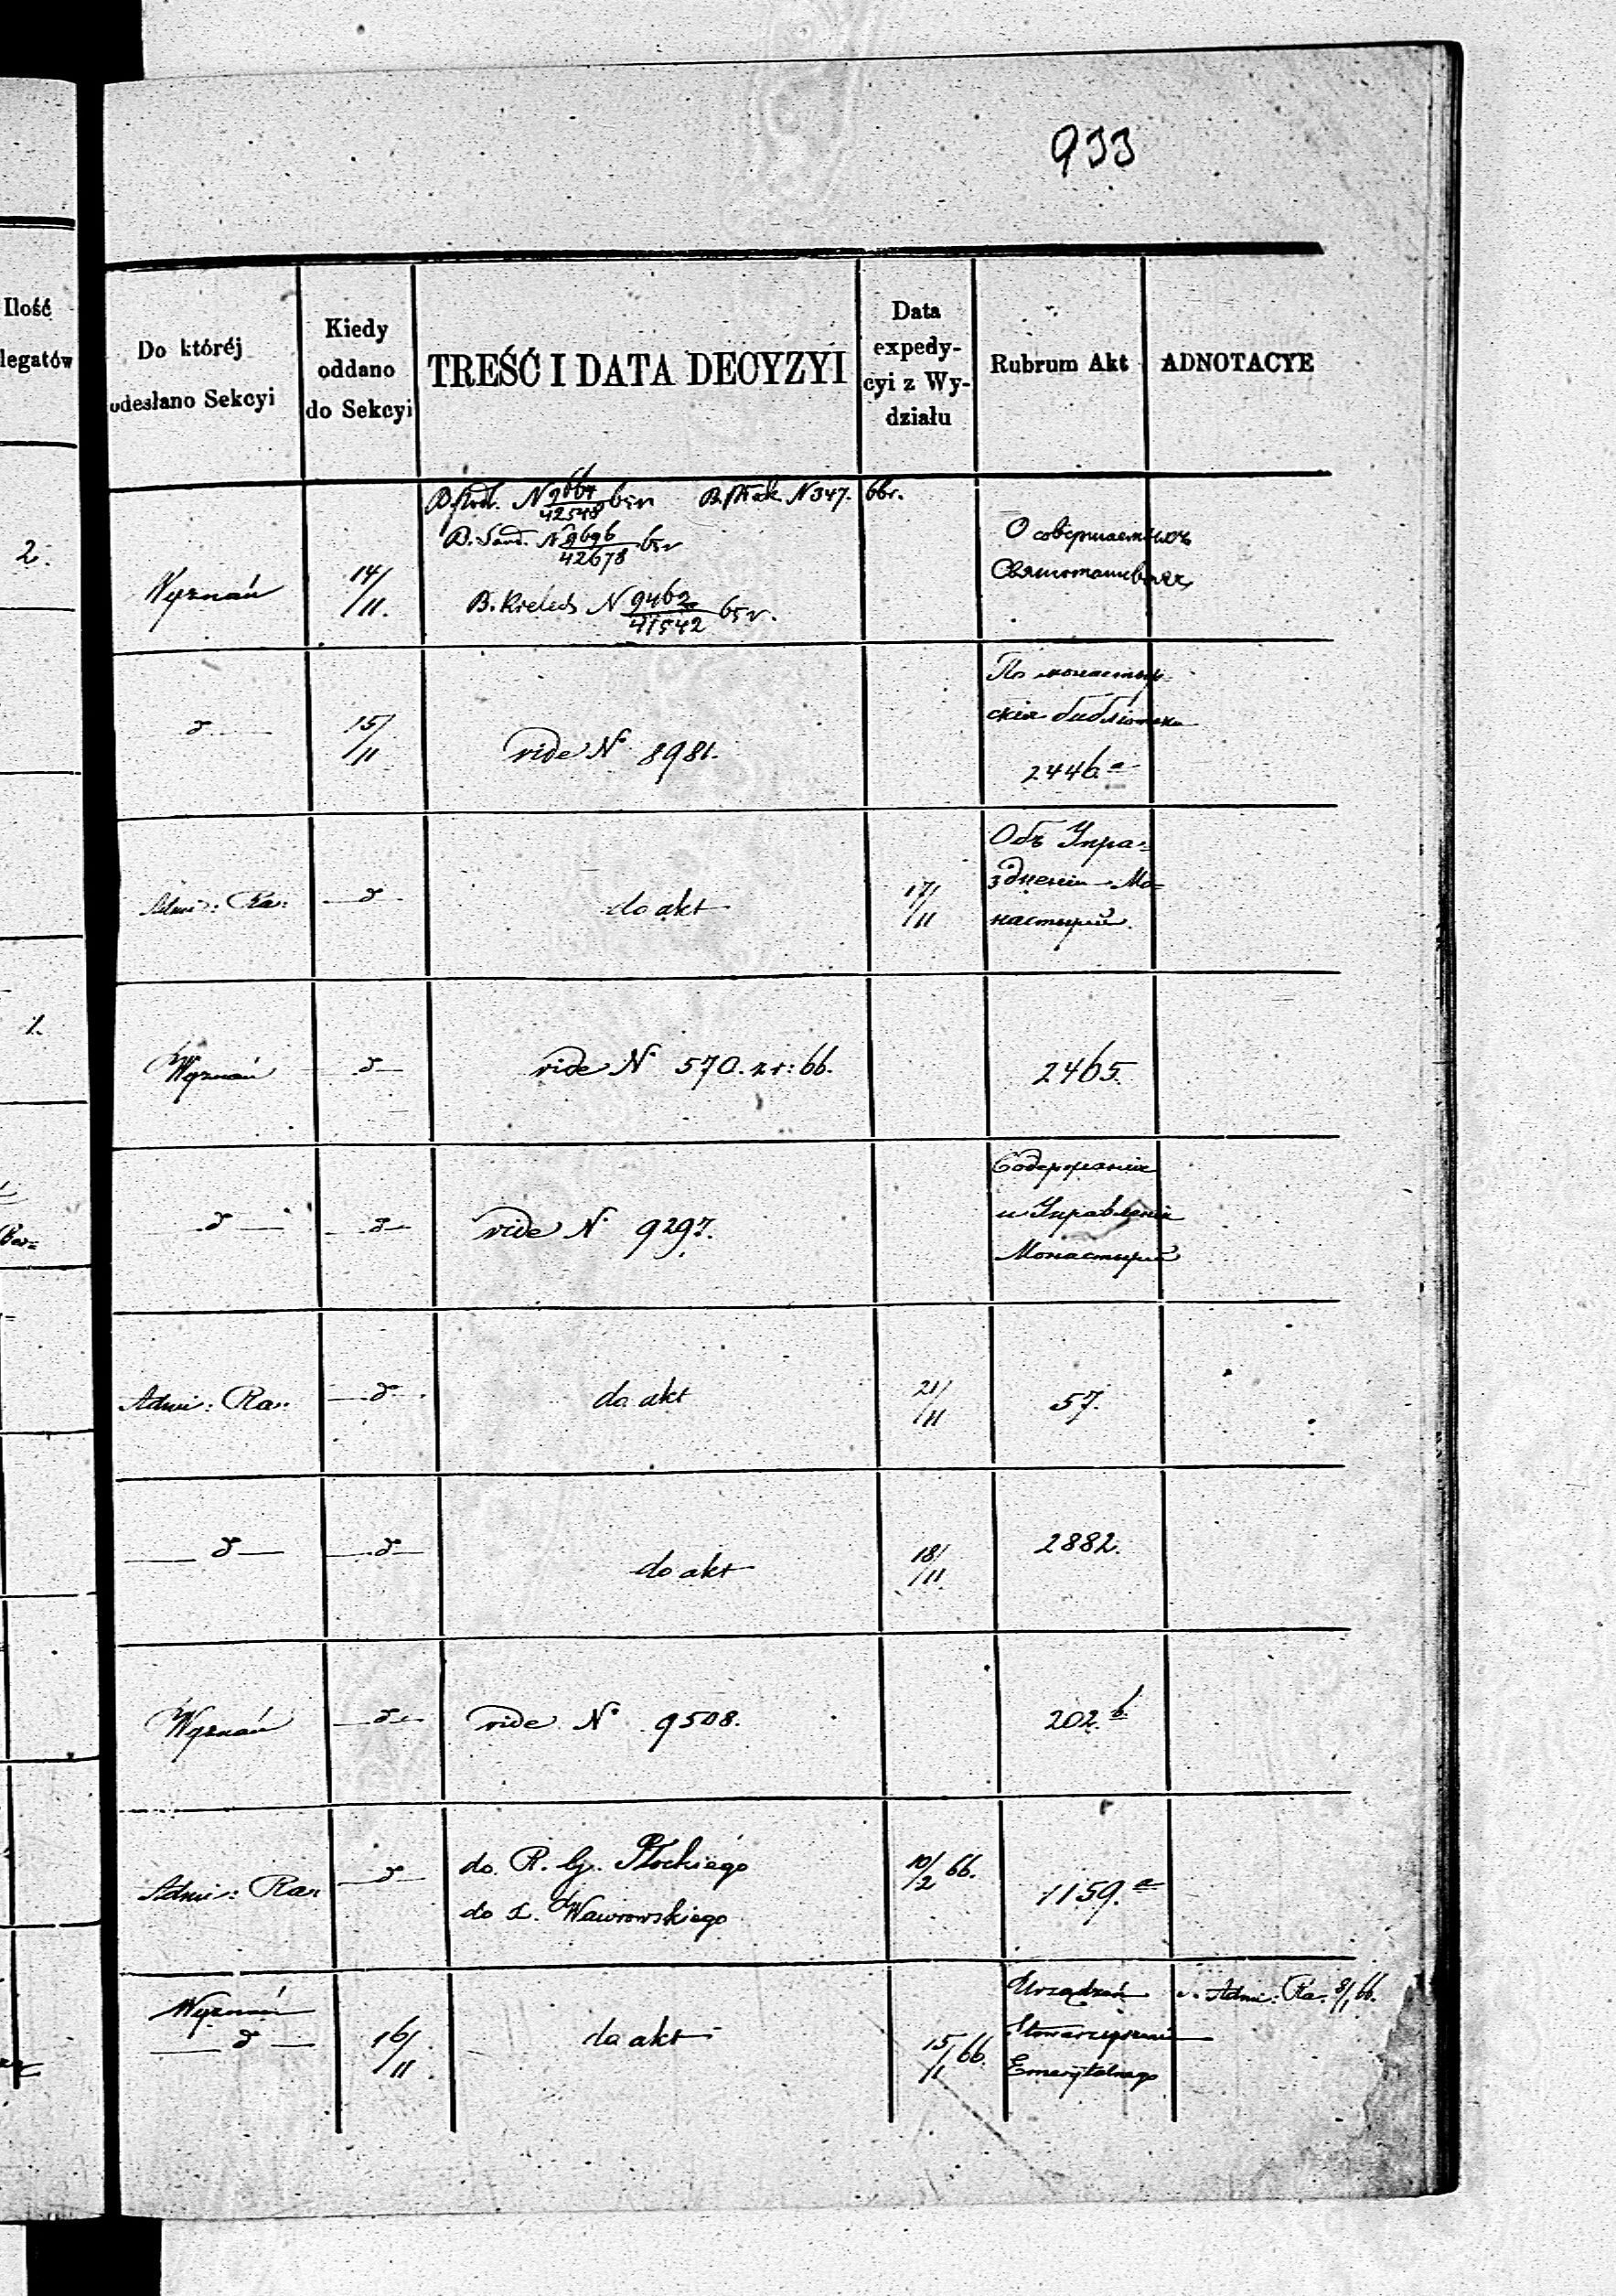 933
Ilość
legatów
Do któréj
odesłano Sekcyi
Kiedy
oddano
do Sekcyi
TREŚĆ I DATA DECYZYI
Data
expedy-
cyi z Wy-
działu
Rubrum Akt
ADNOTACYE
2.
Wyznań
14/11.
D. Podl. N 9664/42548 65 r
B. Płock. N 347. 66 r.
D. Sand. N 9696/42678 65 r
B. Kielech N 9462/41542 65 r.
О совершаемых
д
15/11
vide N. 8981.
По монастыр-
ския библиотеки
2446 a
Admi: Ra:
д
do akt
17/11
Объ Упра=
зднении Мо=
настырей.
1.
Wyznań
д
vide N. 570. z r: 66.
2465.
д
д
vide N. 9297.
Содержания
и Управления
Монастырей
Admi: Ra:
д
do akt
21/11
57.
д
д
do akt
18/11
2882.
Wyznań
д
vide N. 9508.
202. b.
Admi: Ra:
д
do R. G. Płockiego
do X. Wawrowskiego
10/2 66.
1159. a
Wyznań
д
16/11
do akt
15/1 66.
Urządzeń
Stowarzyszenia
Emerytalnego
v. Admi: Ra. 8/1 66.